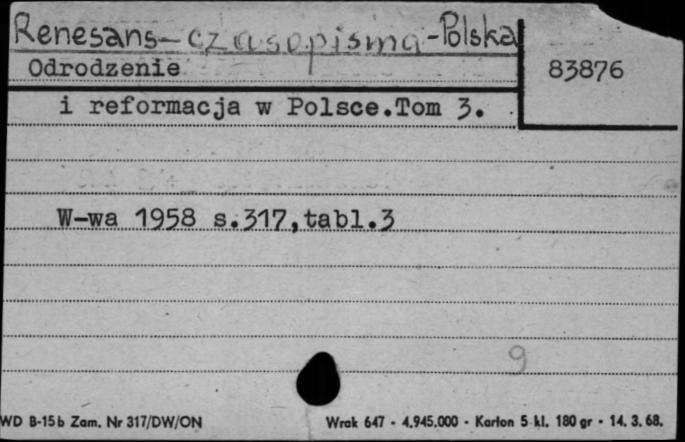 Renesans-czasopisma-Polska
Odrodzenie
83876
i reformacja w Polsce.Tom 3.
W-wa 1958 s.317,tabl.3
9
WD B-15b Zam. Nr 317/DW/ON
Wrak 647 - 4.945.000 - Karton 5 kl. 180 gr - 14. 3. 68.